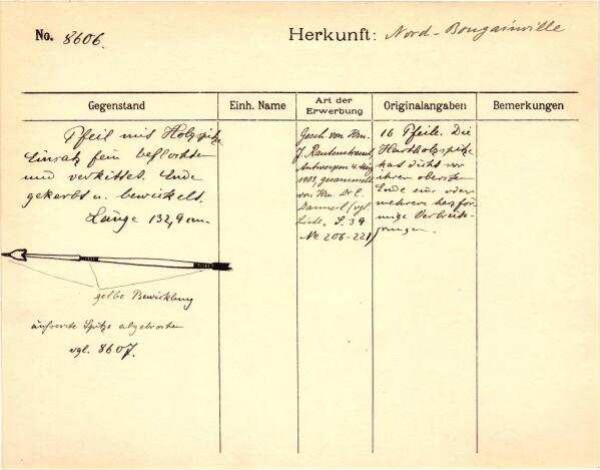 No. 8606.
Herkunft: Nord-Bougainville
Gegenstand
Einh. Name
Art der Erwerbung
Originalangaben
Bemerkungen
Pfeil mit Holzspitze
Einsatz fein beflochten
und verkittet. Ende
gekerbt u. bewickelt.
Länge 132,9 cm.
gelbe Bewicklung
äußerste Spitze abgebrochen
vgl. 8607.
Gesch. von Hrn.
J. Rautenstrauch,
Antwerpen 4. Aug
1903, gesammelt
von Hrn. Dr. E.
(vgl.
Liste, S. 39
No 206-221)
16 Pfeile. Die
Hartholzspitze
hat dicht vor
ihrem obersten
Ende eine oder
mehrere